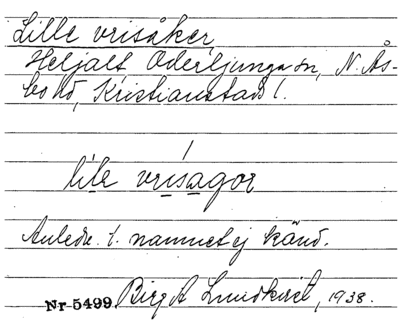 Lille vrisåker,
Heljalt, Oderljunga sn, N. Ås-
bo hd, Kristianstads l.
li̲le vri̲sa̲gor
Anledn. t. namnet ej känd.
Nr 5499. Birgit Lundkvist, 1938.